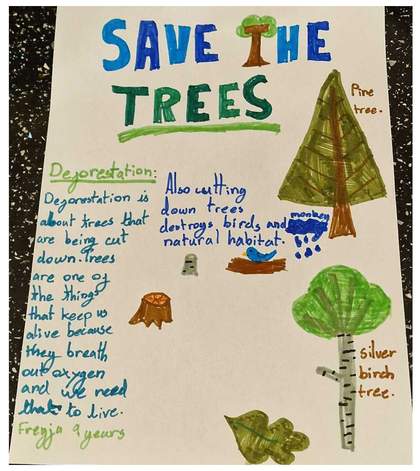 SAVE THE
TREES
Deforestation:
Deforestation is
about trees that
are being cut
down. Trees
are one of
the things
that keep us
alive because
they breath
out oxygen
and we need
that to live.
Freyja 9 years
Also cutting
down trees
destroys birds and
natural habitat.
monkey
Pine
tree.
silver
birch
tree.